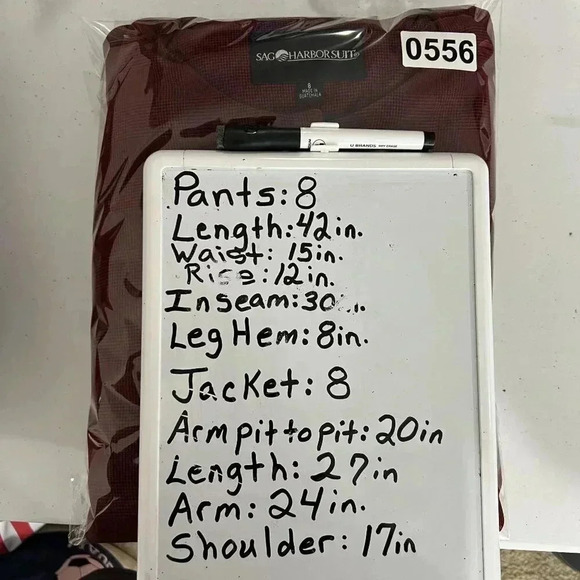 SAG HARBOR SUIT
0556
8
MADE IN
GUATEMALA
U BRANDS DRY ERASE
Pants: 8
Length: 42 in.
Waist: 15 in.
Rise: 12 in.
Inseam: 30
Leg Hem: 8in.
Jacket: 8
Arm pit to pit: 20in
Length: 27in
Arm: 24 in.
Shoulder: 17in